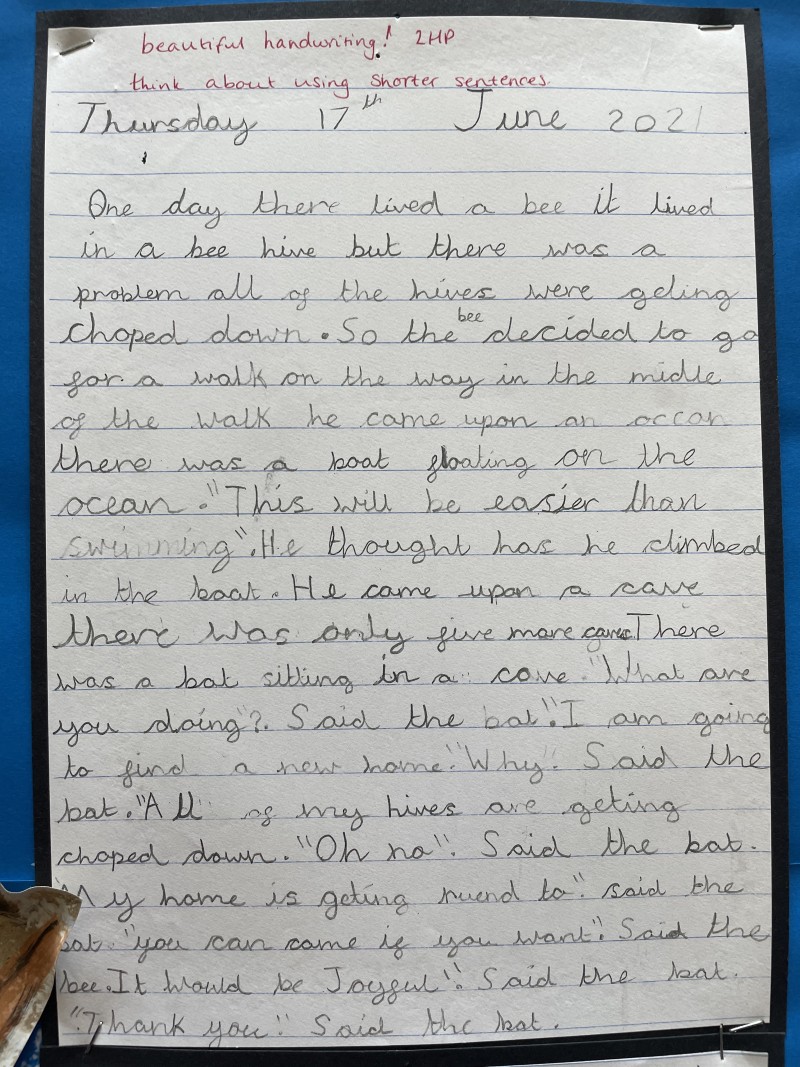 beautiful handwriting! 2HP
think about using shorter sentences.
Thursday 17th June 2021
One day there lived a bee it lived
in a bee hive but there was a
problem all of the hives were geting
choped down. So the bee decided to go
for a walk on the way in the middle
of the walk he came upon an occan
there was a boat floating on the
ocean. "This will be easier than
swimming". He thought has he climbed
in the boat. He came upon a cave
there was only five more caves There
was a bat sitting in a cave. "What are
you doing"? Said the bat". I am going
to find a new home". "Why". Said the
bat. "All of my hives are geting
choped down. "Oh no". Said the bat.
"My home is geting ruend to" said the
bat. "you can come if you want". Said the
bee. It would be Joyful". Said the bat.
"Thank you". Said the bat.